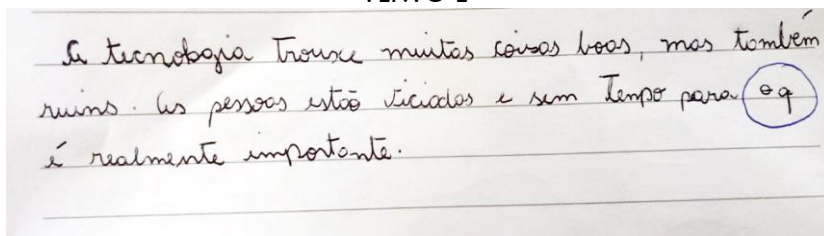 A tecnologia Trouxe muitas coisas boas, mas também
ruins. As pessoas estão viciadas e sem Tempo para o q
é realmente importante.